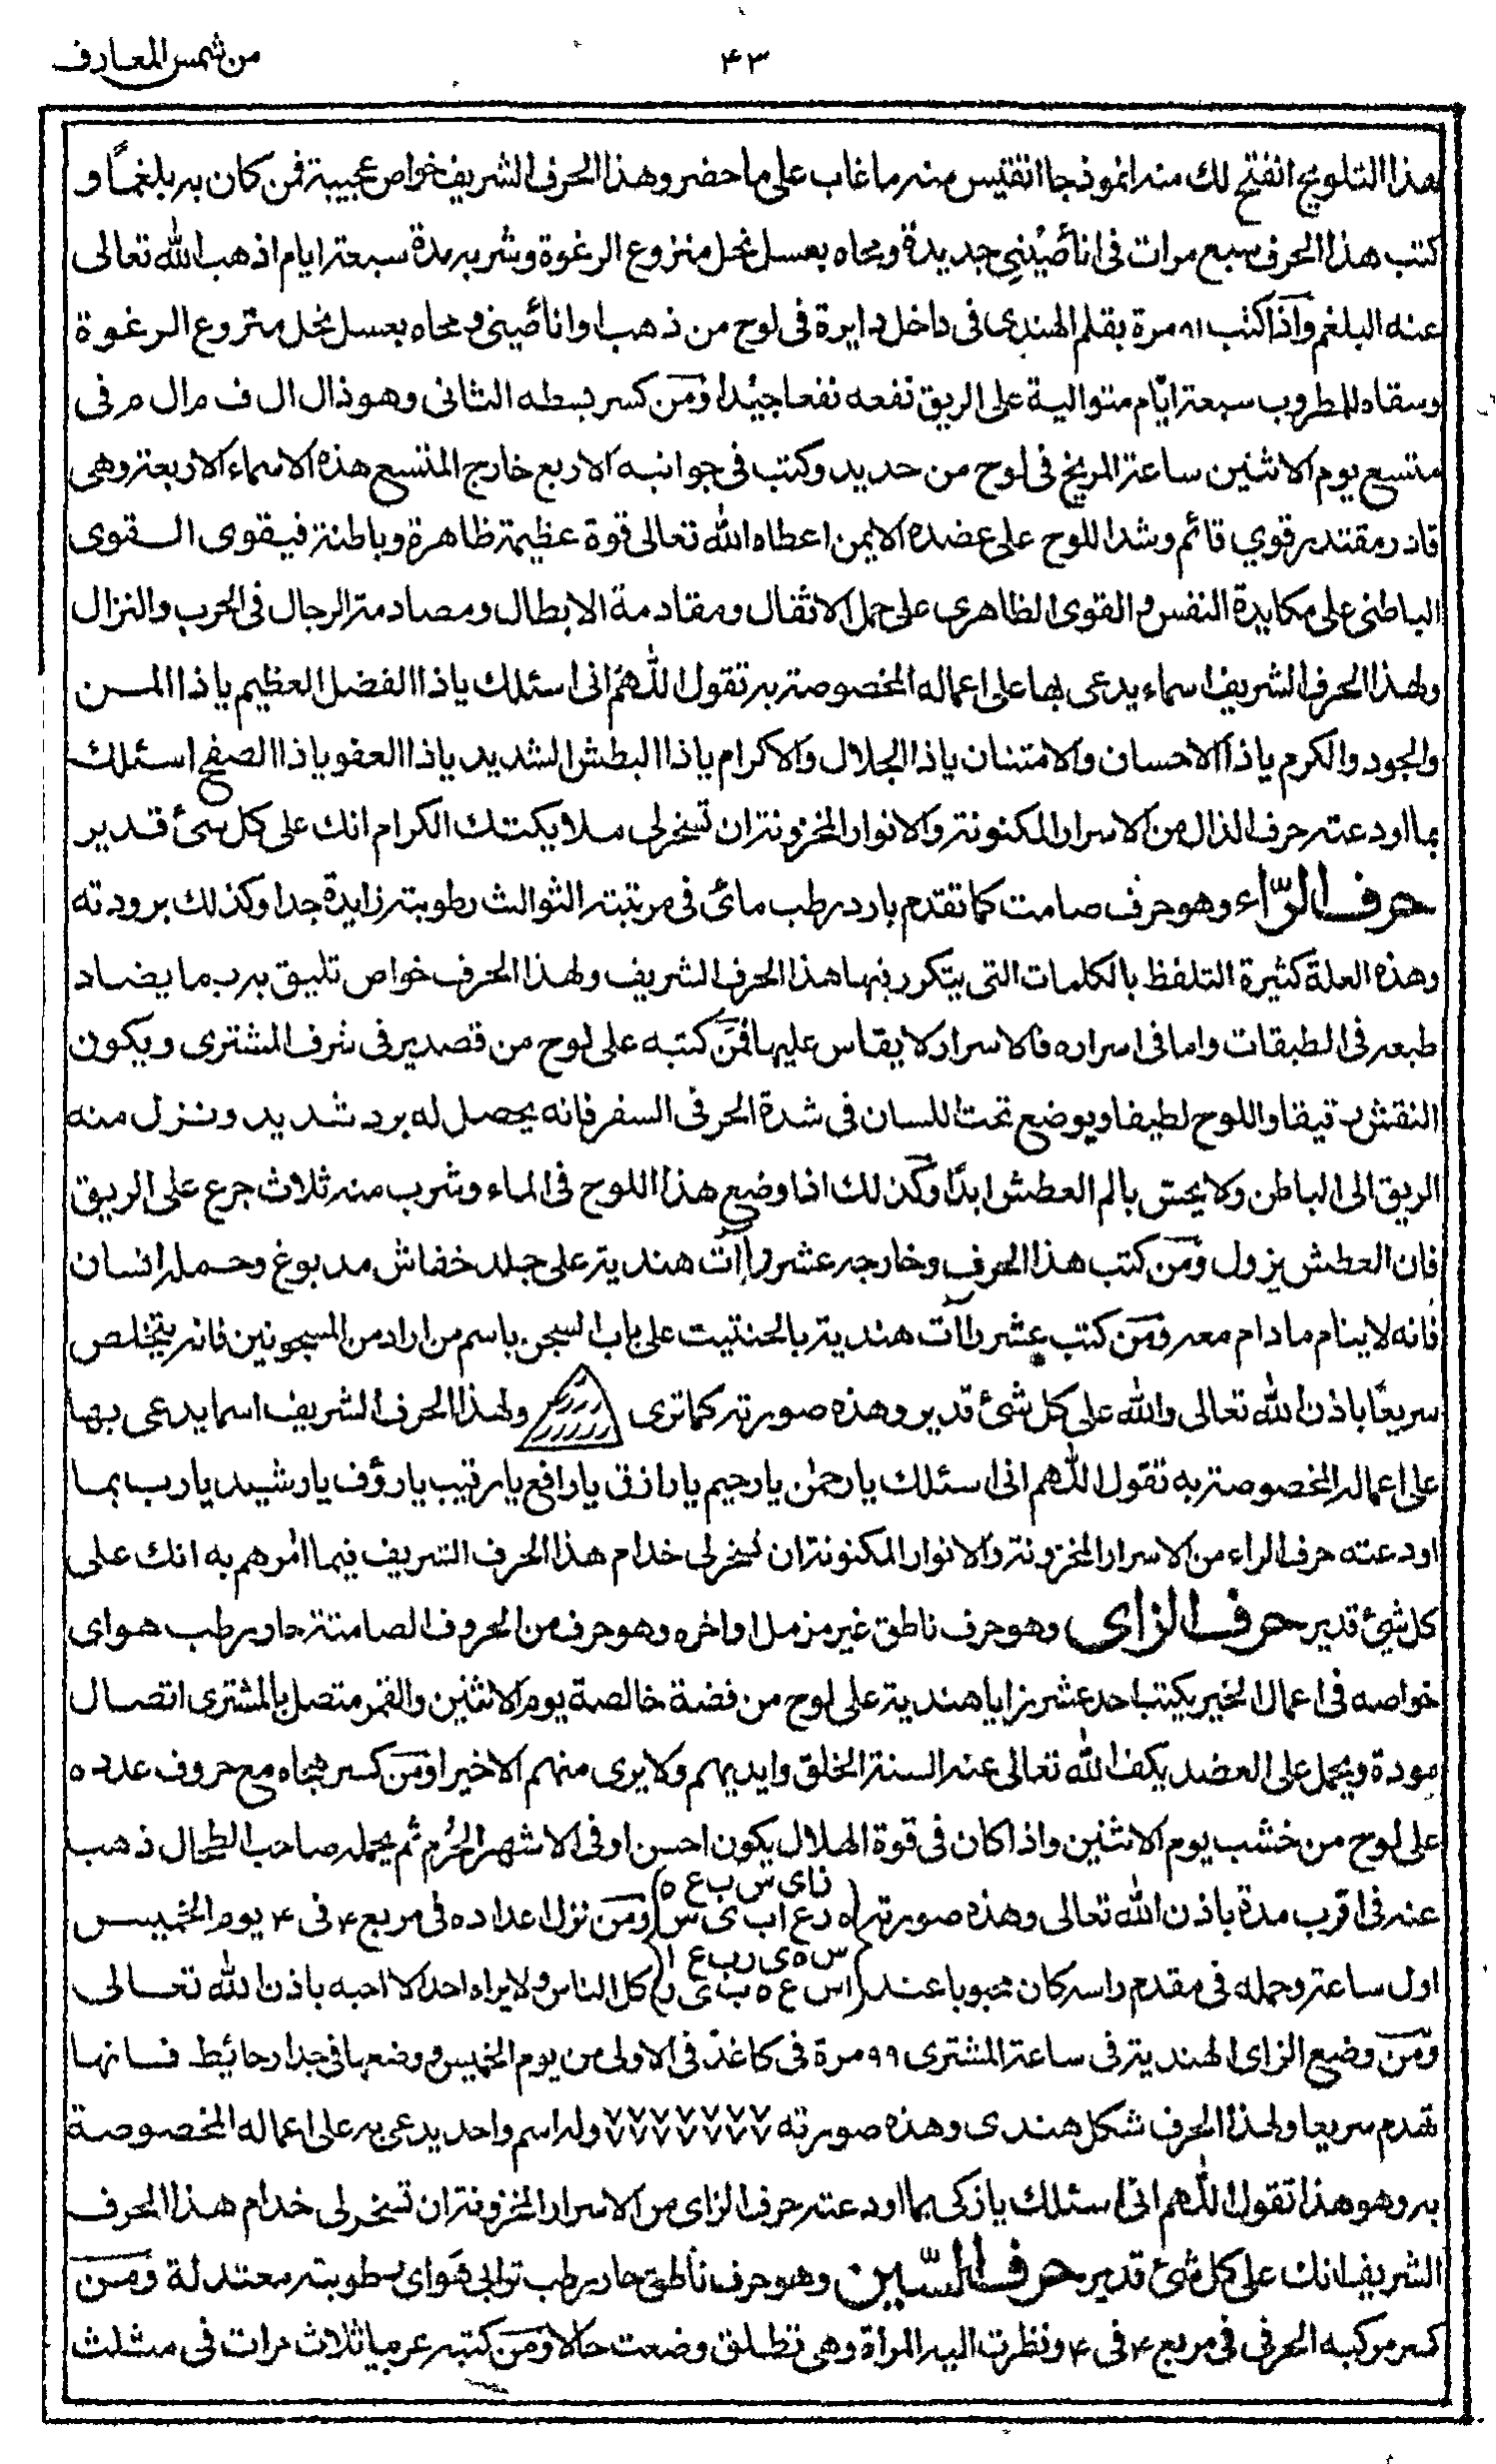 من شمس المعارف
۴۳
هذا التلويح انفتح لك منه انموذجا تقتبس منه ما غاب على ما حضر وهذا الحرف الشريف خواص عجيبة فمن كان به بلغما و
كتب هذا الحرف سبع مرات فى اناء صينى جديدة ومحاه بعسل نحل منزوع الرغوة وشربه مدة سبعة ايام اذهب الله تعالى
عنه البلغم واذا كتب ٩١ مرة بقلم الهندى فى داخل دايرة فى لوح من ذهب او اناء صينى ومحاه بعسل نحل منزوع الرغوة
وسقاه للمطروب سبعة ايام متوالية على الريق نفعه نفعا جيدا ومن كسر بسطه الثانى وهو ذال ال ف م ال م فى
متسع يوم الاثنين ساعة المريخ فى لوح من حديد وكتب فى جوانبه الاربع خارج المتسع هذه الاسماء الاربعة وهى
قادر مقتدر قوي قائم وشد اللوح على عضده الايمن اعطاه الله تعالى قوة عظيمة ظاهرة وباطنة فيقوى القوى
الباطنى على مكابدة النفس والقوى الظاهرى على حمل الاثقال ومقادمة الابطال ومصادمة الرجال فى الحرب والنزال
ولهذا الحرف الشريف اسماء يدعى بها على اعماله المخصوصة به تقول اللهم انى اسئلك ياذا الفضل العظيم ياذا المن
والجود والكرم ياذا الاحسان والامتنان ياذا الجلال والاكرام ياذا البطش الشديد ياذا العفو ياذا الصفح اسئلك
بما اودعته حرف الذال من الاسرار المكنونة والانوار المخزونة ان تسخر لى ملايكتك الكرام انك على كل شئ قدير
حرف الرّاء وهو حرف صامت كما تقدم بارد رطب مائى فى مرتبته الثوالث رطوبته زايدة جدا وكذلك برودته
وهذه العلة كثيرة التلفظ بالكلمات التى يتكرر فيها هذا الحرف الشريف ولهذا الحرف خواص تليق به رب ما يضاد
طبعه فى الطبقات واما فى اسراره فالاسرار لا يقاس عليها فمن كتبه على لوح من قصدير فى شرف المشترى ويكون
النقش دقيقا واللوح لطيفا ويوضع تحت اللسان فى شدة الحر فى السفر فانه يحصل له برد شديد ونزل منه
الريق الى الباطن ولا يحس بالم العطش ابدا وكذلك اذا وضع هذا اللوح فى الماء وشرب منه ثلاث جرع على الريق
فان العطش يزول ومن كتب هذا الحرف وخارجه عشر راآت هندية على جلد خفاش مدبوغ وحمله انسان
فانه لا ينام ما دام معه ومن كتب عشر راآت هندية بالحنتيت على باب السجن باسم من اراد من المسجونين فانه يتخلص
سريعا باذن الله تعالى والله على كل شئ قدير وهذه صورته كما ترى ولهذا الحرف الشريف اسما يدعى بها
على اعماله المخصوصة به تقول اللهم انى اسئلك يا رحمن يا رحيم يا رازق يا رافع يا رقيب يا رؤف يا رشيد يا رب بما
اودعته حرف الراء من الاسرار المخزونة والانوار المكنونة ان تسخر لى خدام هذا الحرف الشريف فيما امرهم به انك على
كل شئ قدير حرف الزاى وهو حرف ناطق غير مزمل اواخره وهو حرف من الحروف الصامتة حار رطب هواى
خواصه فى اعمال الخير يكتب احد عشر زايا هندية على لوح من فضة خالصة يوم الاثنين والقمر متصل بالمشترى اتصال
مودة ويحمل على العضد يكف الله تعالى عنه السنة الخلق وايديهم ولا يرى منهم الا خيرا ومن كسر هجاه مع حروف عدده
على لوح من خشب يوم الاثنين واذا كان فى قوة الهلال يكون احسن او فى الاشهر الحرم ثم يحمله صاحب الطحال ذهب
ز ا ى س ب ع ه
عنه فى اقرب مدة باذن الله تعالى وهذه صورته ه ز ع ا ب ى س ومن نزل اعداده فى مربع ۴ فى ۴ يوم الخميس
س ه ى ز ب ع ا
اول ساعة وحمله فى مقدم راسه كان محبوبا عند ا س ع ه ب ى ز كل الناس ولا يراه احد الا احبه باذن الله تعالى
ومن وضع الزاى الهندية فى ساعة المشترى ٩٩ مرة فى كاغذ فى الاولى من يوم الخميس ووضعها فى جدار حائيط فانها
تهدم سريعا ولهذا الحرف شكل هندى وهذه صورته ٧٧٧٧٧٧٧ وله اسم واحد يدعى به على اعماله المخصوصة
به وهو هذا تقول اللهم انى اسئلك يا زكى بما اودعته حرف الزاى من الاسرار المخزونة ان تسخر لى خدام هذا الحرف
الشريف انك على كل شئ قدير حرف السّين وهو حرف ناطق حار رطب ترابى هواى رطوبته معتدلة ومن
كسر مركبه الحرفى فى مربع ۴ فى ۴ ونظرت اليه المراة وهى تطلق وضعت حالا ومن كتبه عربيا ثلاث مرات فى مثلث